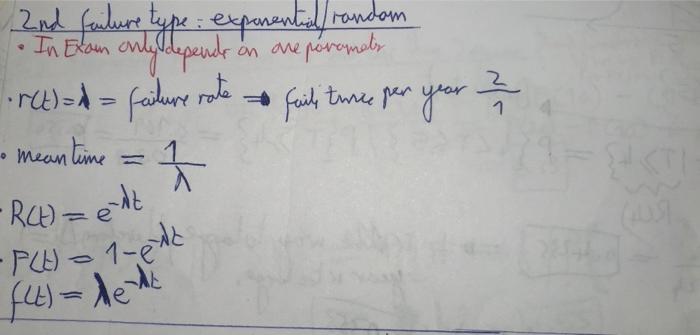 2nd failure type: exponential/random
• In Exam only depends on one parameter
• r(t) = λ = failure rate → fails twice per year 2/1
• mean time = 1/λ
• R(t) = e^-λt
• F(t) = 1-e^-λt
f(t) = λe^-λt